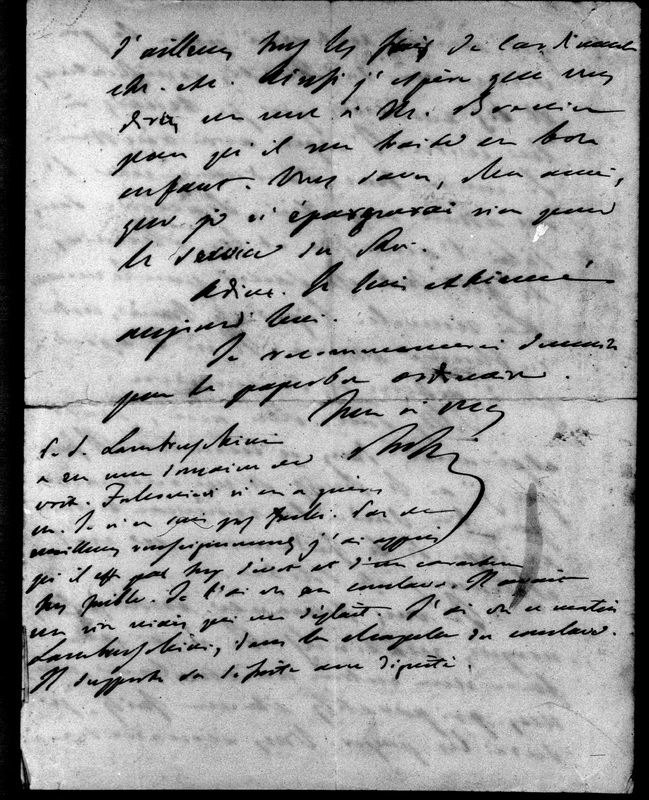 d'ailleurs tous les frais de Cardinaux
etc. etc. Ainsi j'espère que vous
direz un mot à M.
pour qu'il me traite en bon
enfant. Vous savez, cher ami,
que je n'épargnerai rien pour
le service du Roi.
Adieu. Je suis abîmé
aujourd'hui.
Je recommencerai demain
par la papeterie ordinaire.
Tout à vous
P. S. Lambruschini
a eu une dizaine de
voix. n'en a guères
eu. Je n'en suis pas fâché. Par de
meilleurs renseignements j'ai appris
qu'il est pas trop dévot et d'un caractère
très faible. Je l'ai vu au conclave. Il avait
un rire niais qui me déplaît. J'ai vu ce matin
Lambruschini, dans la chapelle du conclave.
Il supporte sa défaite avec dignité.